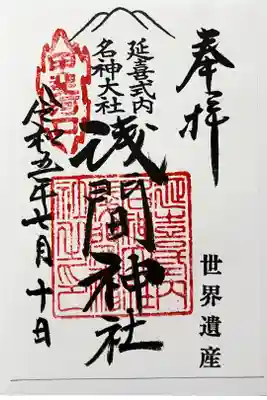 奉拝
延喜式内
名神大社
浅間神社
世界遺産
令和五年七月十日